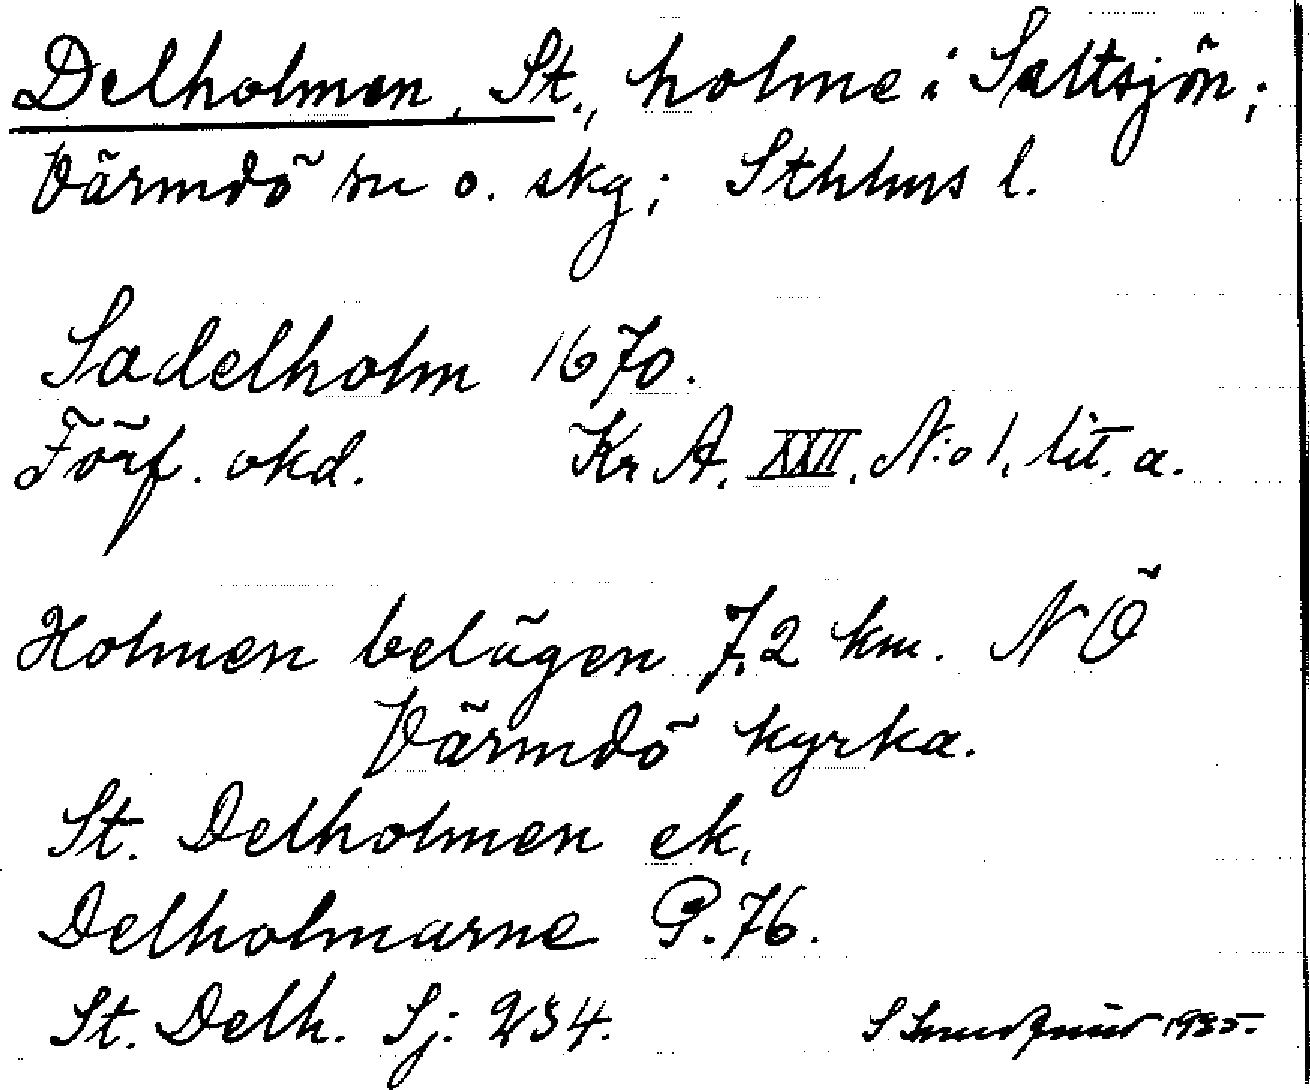 Delholmen, St., holme i Saltsjön;
Värmdö sn o. skg; Sthlms l.
Sadelholm 1670.
Förf. okd. Kr A. XXII, N:o 1, lit. a.
Holmen belägen 7,2 km. NÖ
Värmdö kyrka.
St. Delholmen ek,
Delholmarne P. 76.
St. Delh. Sj: 234.
S 1935.